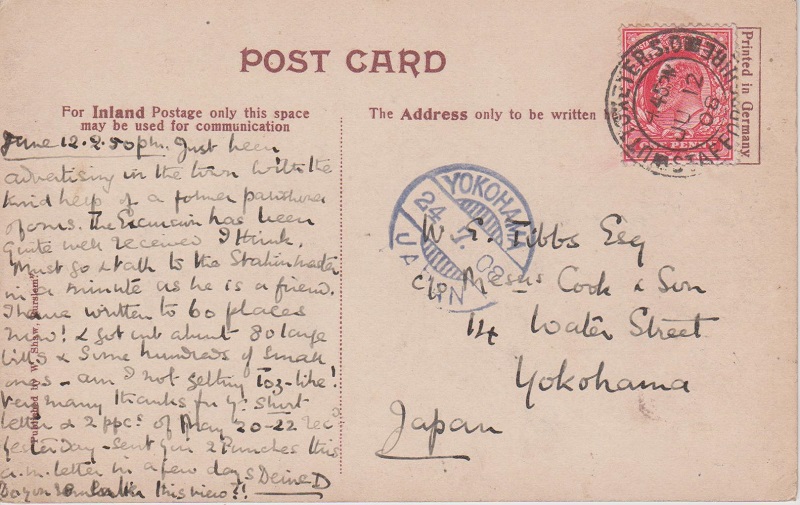 POST CARD
Printed in Germany
For Inland Postage only this space
may be used for communication
The Address only to be written
UTTOXETER S.O.
JU 12
08
STAFFORDSHIRE
PENNY
YOKOHAMA
24. 7. 08
JAPAN
June 12. 2.50 pm. Just been
advertising in the town with the
kind help of a former
of ours. The Excursion has been
quite well received I think.
Must go & talk to the Stationmaster
in a minute as he is a friend.
I have written to 60 places
now! & got out about 80 large
bills & some hundreds of small
ones – am I not getting Toz-like!
Very many thanks for yr short
letter & 2 ppcs of May 20-22 recd
yesterday – sent you 2 Punches this
a.m. letter in a few days Deine D
Do you this view?!
Published by W. Shaw, Burslem
W. E. Tibbs Esq
c/o Messrs Cook & Son
14 Water Street
Yokohama
Japan